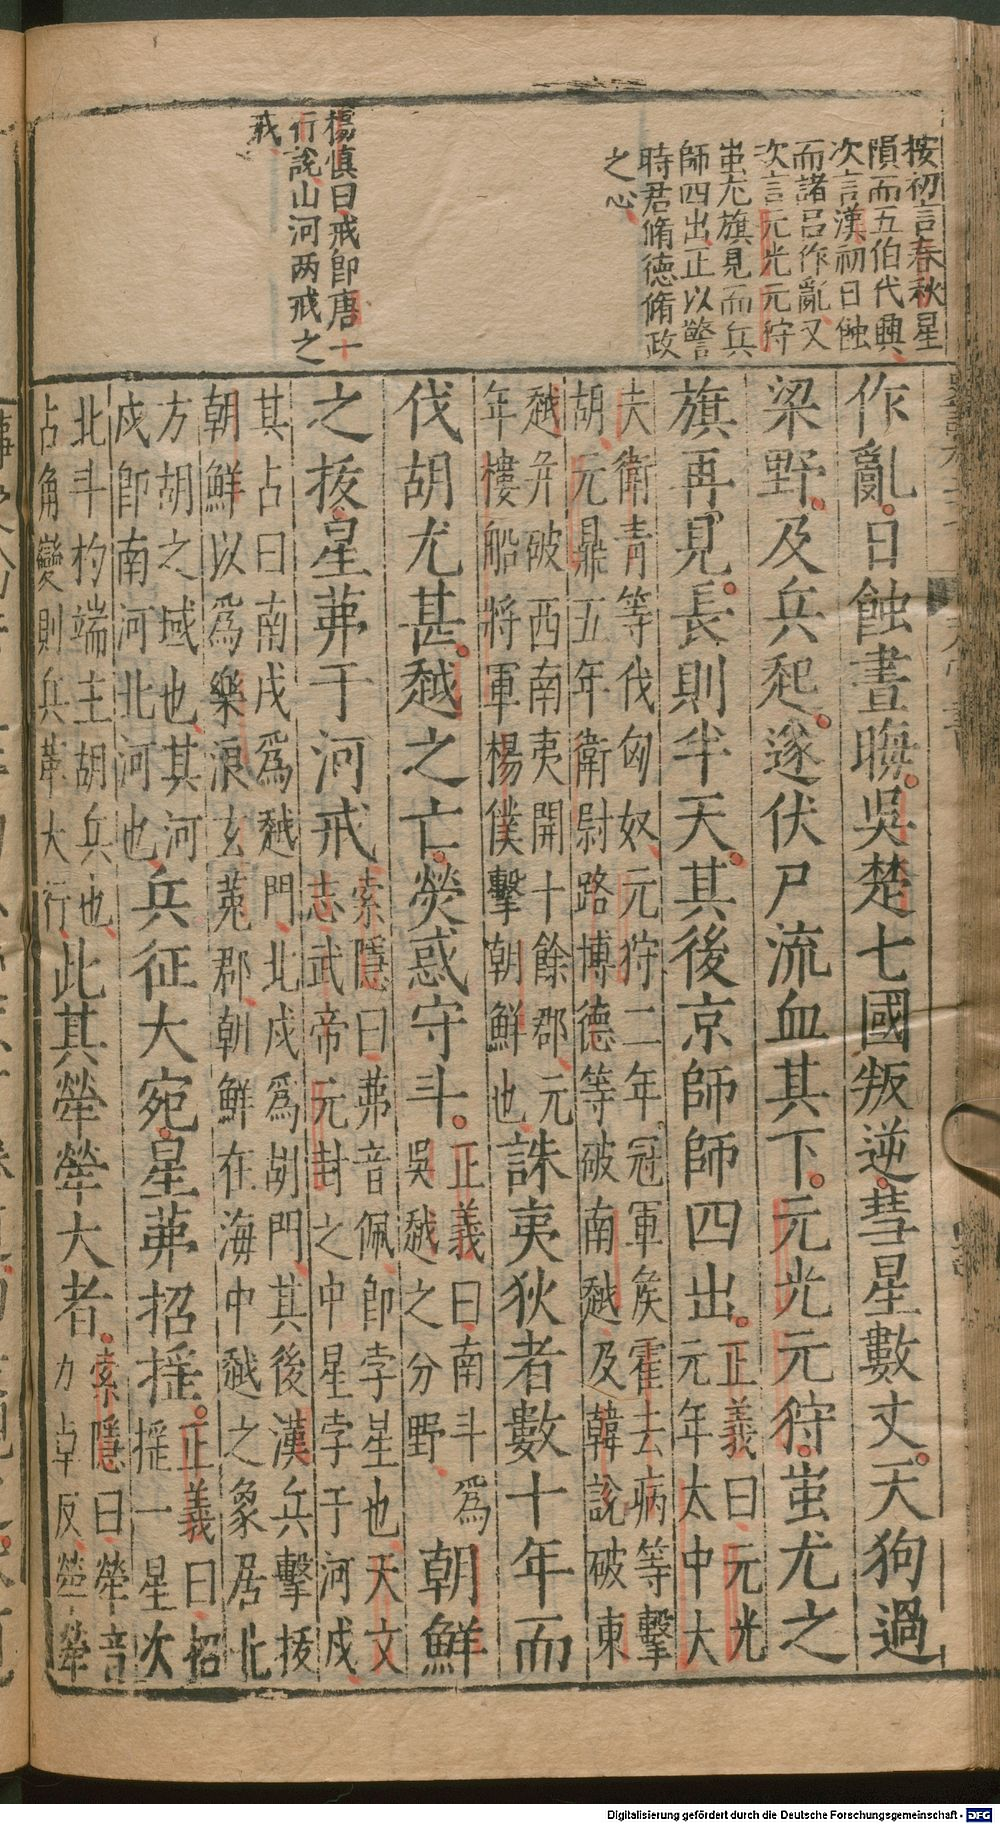 按初言春秋星
隕而五伯代興
次言漢初日蝕
而諸呂作亂又
次言元光元狩
蚩尤旗見而兵
師四出正以警
時君脩德脩政
之心
楊慎曰戒即唐一
行說山河两戒之
戒
作亂日蝕晝晦吳楚七國叛逆彗星數丈天狗過
梁野及兵起遂伏尸流血其下元光元狩蚩尤之
旗再見長則半天其後京師師四出正義曰元光
元年太中大
夫衛青等伐匈奴元狩二年冠軍矦霍去病等擊
胡元鼎五年衛尉路博德等破南越及韓說破東
越并破西南夷開十餘郡元
年樓船將軍楊僕擊朝鮮也誅夷狄者數十年而
伐胡尤甚越之亡熒惑守斗正義曰南斗為
吳越之分野朝鮮
之拔星茀于河戒索隱曰茀音佩即孛星也天文
志武帝元封之中星孛于河戍
其占曰南戍為越門北戍為胡門其後漢兵擊拔
朝鮮以為樂浪玄菟郡朝鮮在海中越之象居北
方胡之域也其河
戍即南河北河也兵征大宛星茀招搖正義曰招
搖一星次
北斗杓端主胡兵也
占角變則兵革大行此其犖犖大者索隱曰犖音
力卓反犖犖
Digitalisierung gefördert durch die Deutsche Forschungsgemeinschaft - DFG